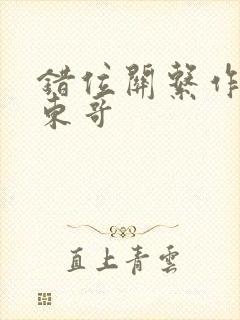 錯位關繫作
東哥
直上青雲